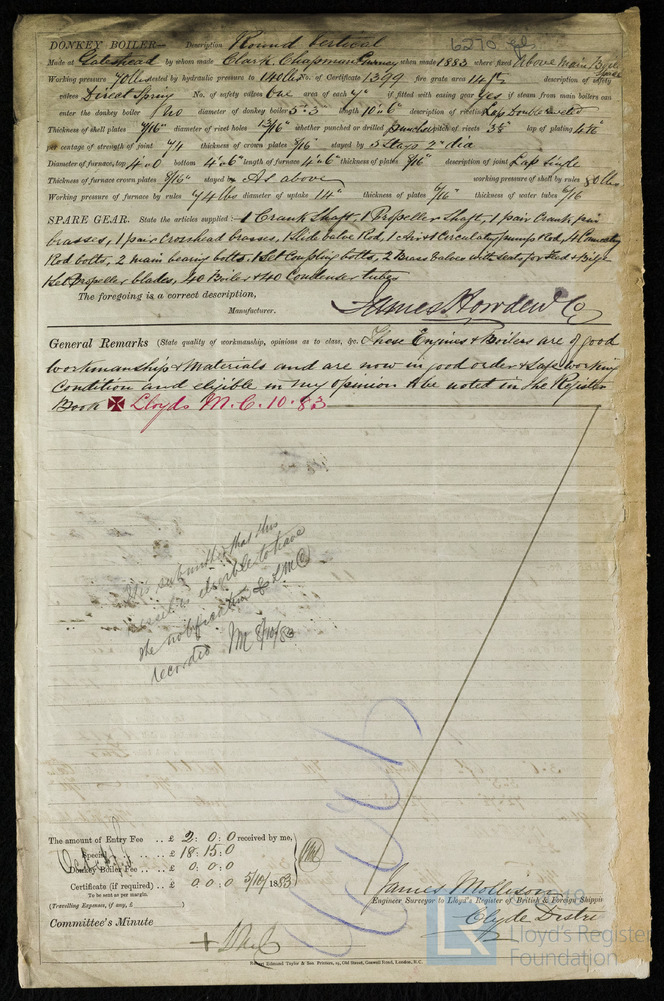 DONKEY BOILER— Description Round Vertical 6270 gls
Made at Gateshead by whom made Clark, Chapman Gurney when made 1883 where fixed Above Main Boiler
Working pressure 70 lbs tested by hydraulic pressure to 140 lbs No. of Certificate 1399 fire grate area 14 ft description of safety
valves Direct Spring No. of safety valves One area of each 7" if fitted with easing gear yes if steam from main boilers can
enter the donkey boiler No diameter of donkey boiler 5'-3" length 10'-6" description of riveting Lap Double riveted
Thickness of shell plates 7/16" diameter of rivet holes 13/16" whether punched or drilled punched pitch of rivets lap of plating
per centage of strength of joint 74 thickness of crown plates 7/16" stayed by 5 Stays 2" dia
Diameter of furnace, top 4'-0" bottom 4'-6" length of furnace 4'-6" thickness of plates 7/16" description of joint Lap single
Thickness of furnace crown plates 8/16" stayed by As above working pressure of shell by rules 80 lbs
Working pressure of furnace by rules 74 lbs diameter of uptake 14" thickness of plates 6/16" thickness of water tubes 6/16
SPARE GEAR. State the articles supplied:— 1 Crank Shaft, 1 Propeller Shaft, 1 pair Crank pin
brasses, 1 pair Crosshead brasses, 1 Slide Valve Rod, 1 Air & Circulating pump Rod, 4 Connecting
Rod bolts, 2 main bearing bolts, 1 Set Coupling bolts, 2 Brass Valves with seats for Feed & Bilge
1 Set Propeller blades, 40 Boiler & 40 Condenser tubes
The foregoing is a correct description,
Manufacturer. James Howden & Co
General Remarks (State quality of workmanship, opinions as to class, &c. These Engines & Boilers are of good
workmanship & Materials and are now in good order & safe working
Condition and eligible in my opinion to be noted in the Register
Book ✠ Lloyds M.C. 10.83
It is submitted that this
vessel is eligible to have
the notification ✠ LMC
recorded M 8/10/83
The amount of Entry Fee .. £ 2 : 0 : 0 received by me,
Special .. £ 18 : 15 : 0
Donkey Boiler Fee .. £ 0 : 0 : 0
Certificate (if required) .. £ 0 0 : 0 5/10/1883
To be sent as per margin.
(Travelling Expenses, if any, £ )
James Mollison
Engineer Surveyor to Lloyd's Register of British & Foreign Shippi
Clyde Distri
Committee's Minute
Robert Edmund Taylor & Son Printers, 19, Old Street, Goswell Road, London, E.C.
LR
Lloyd's Register
Foundation